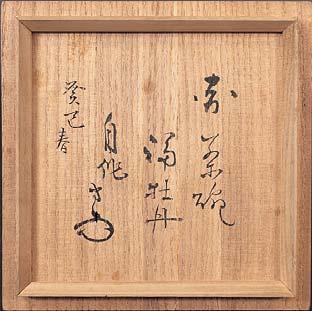 茶碗
福牡丹
自作
癸巳春